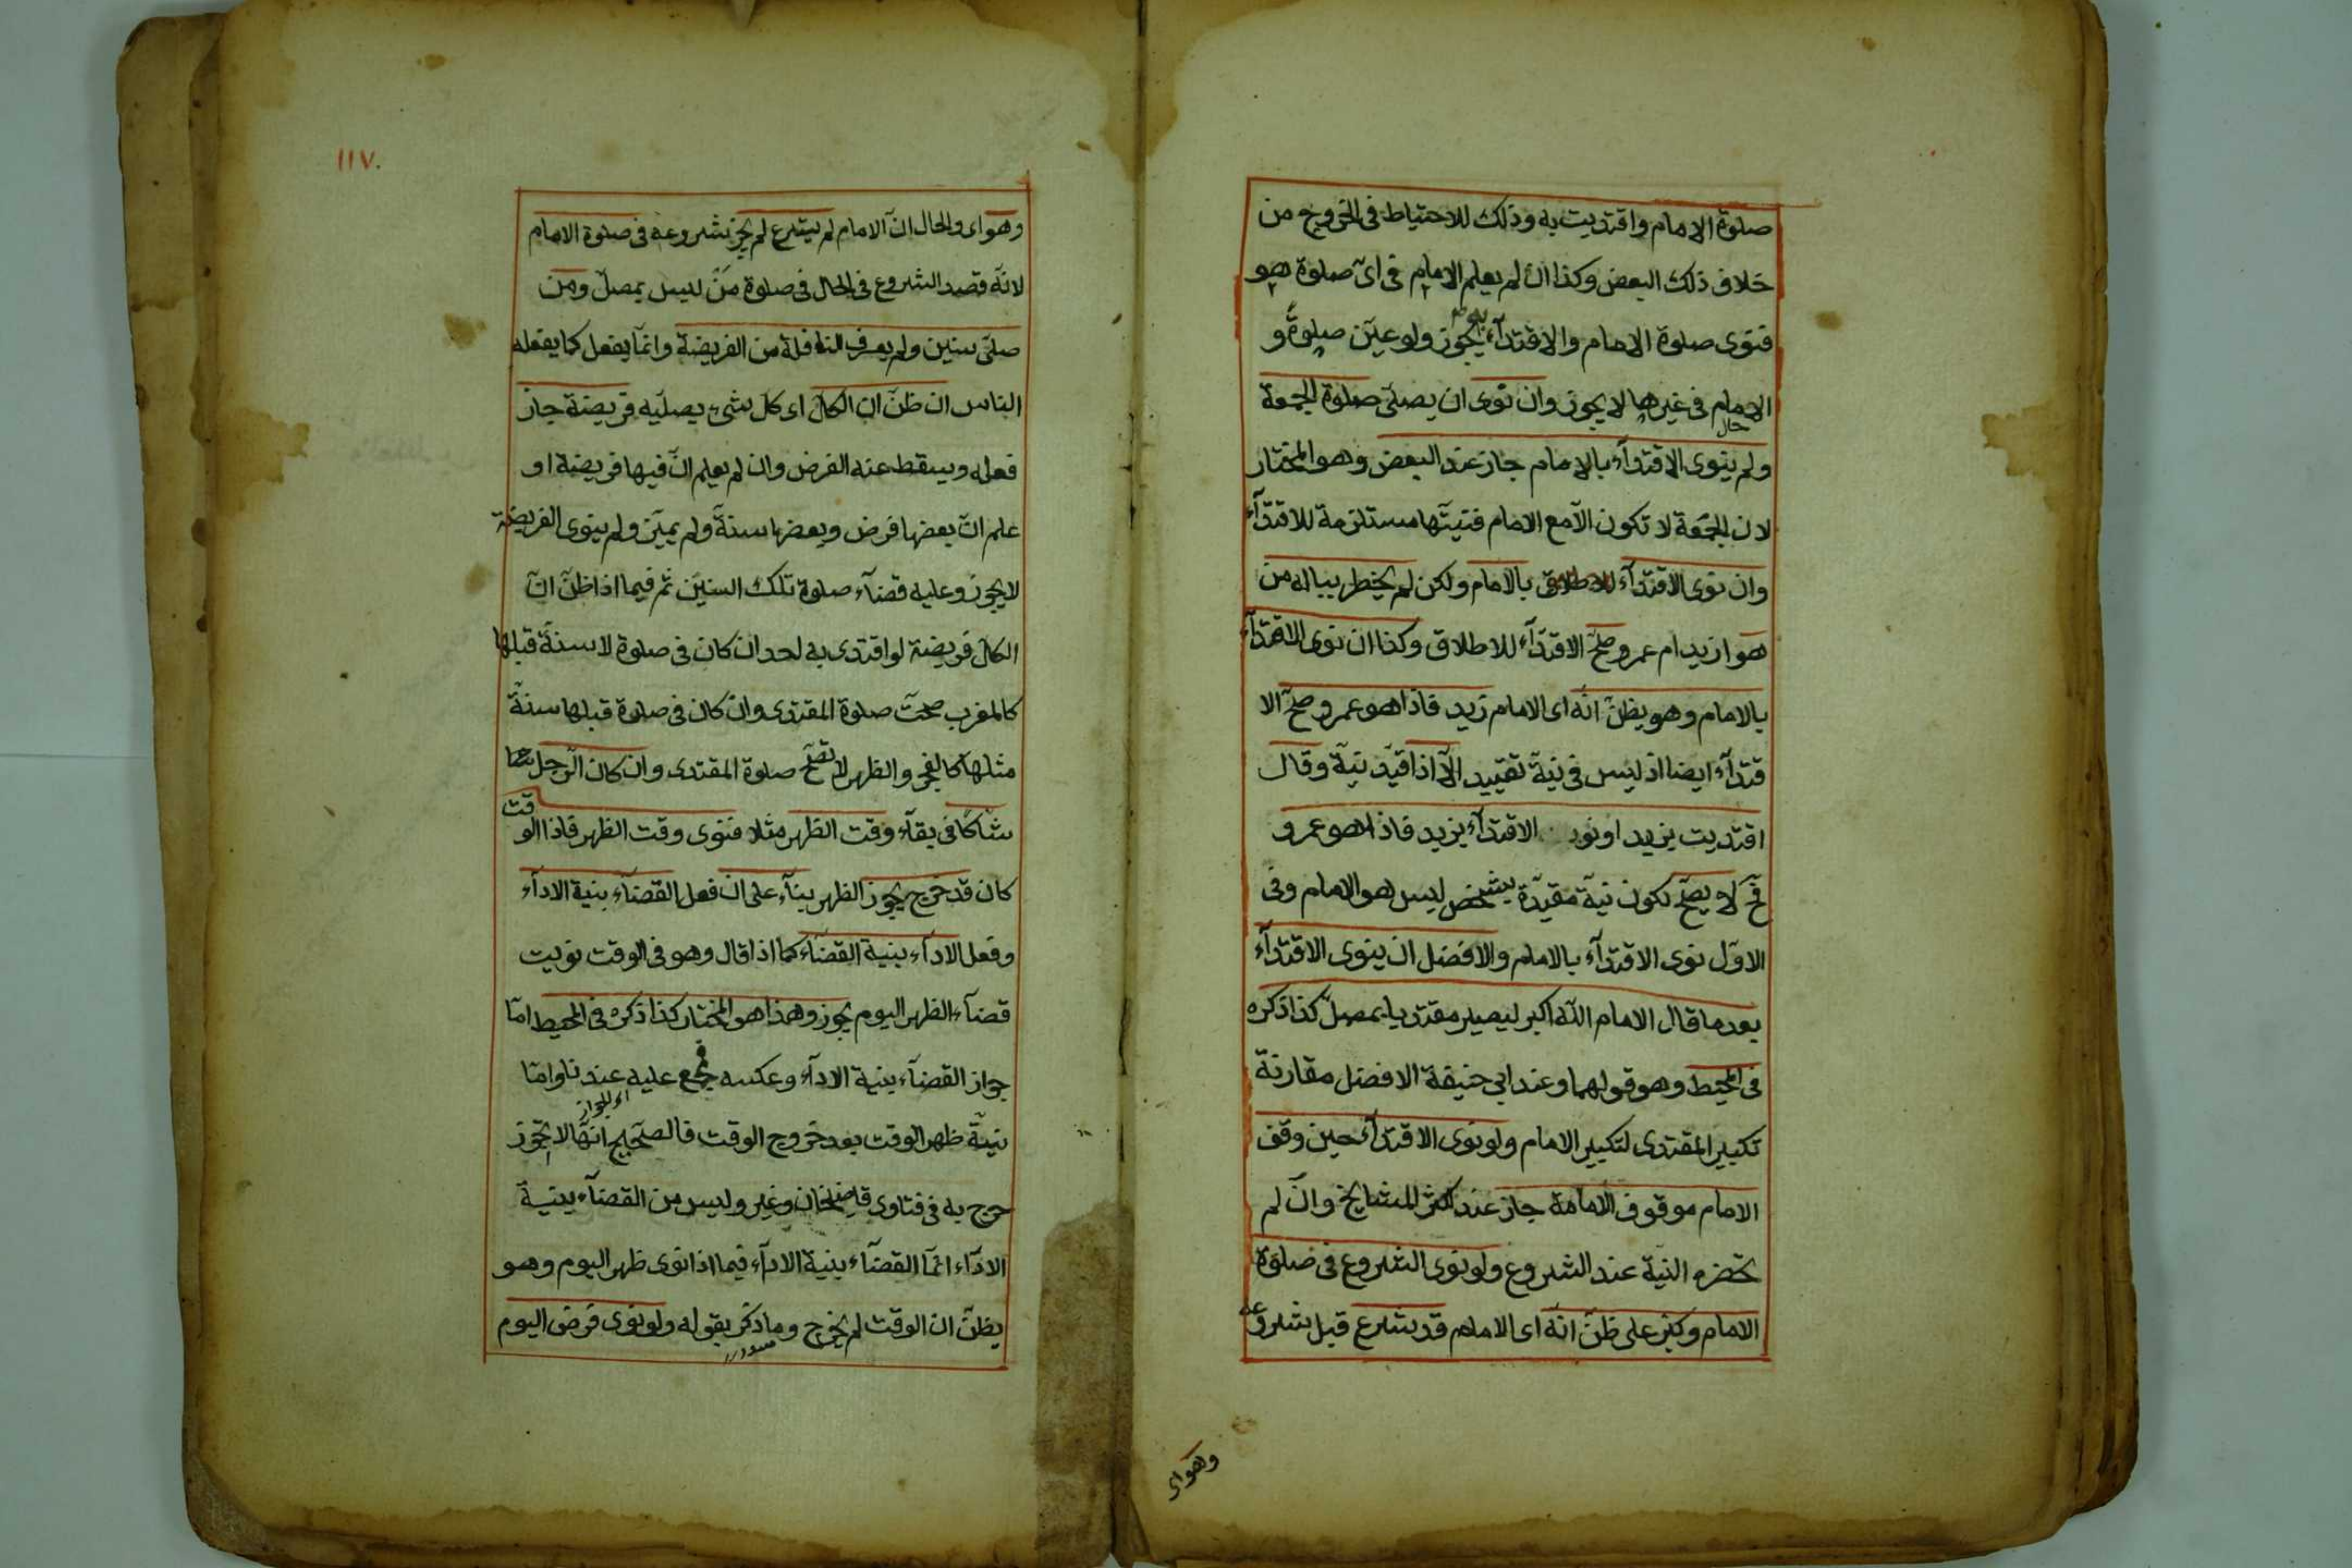 صلوة الامام واقتديت به وذلك للاحتياط فى الخروج من
خلاف ذلك البعض وكذا ان لم يعلم الامام فى اىّ صلوة هو
فنوى صلوة الامام والاقتدآء به يجوز ولو عيّن صلوةً و
الامام فى غيرها لا يجوز وان نوى ان يصلّى صلوة الجمعة
حال
ولم ينوى الاقتدآء بالامام جاز عند البعض وهو المختار
لان الجمعة لا تكون الّا مع الامام فنيتّها مستلزمة للاقتدآء
وان نوى الاقتدآء بالامام ولكن لم يخطر بباله من
هو ازيد ام عمرو صحّ الاقتدآء للاطلاق وكذا ان نوى الاقتدآء
بالامام وهو يظنّ انّه اى الامام زيد فاذا هو عمرو صحّ الا
قتدآء ايضا اذ ليس فى نيّة تقييد الّا اذا قيّد نيّة وقال
اقتديت بزيد او نوى الاقتدآء بزيد فاذا هو عمرو
فح لا يصحّ لكون نيّة مقيّدة بشخص ليس هو الامام وفى
الاوّل نوى الاقتدآء بالامام والافضل ان ينوى الاقتدآء
بعد ما قال الامام اللّه اكبر ليصير مقتديا بمصلّ كذا ذكره
فى المحيط وهو قولهما وعند ابى حنيفة الافضل مقارنة
تكبير المقتدى لتكبير الامام ولو نوى الاقتدآء حين وقف
الامام موقوف الامامة جاز عند اكثر المشايخ وان لم
تحضره النيّة عند الشروع ولو نوى الشروع فى صلوة
الامام وكبّر على ظنّ انّه اى الامام قد شرع قبل شروعه
وهو اى
١١٧
وهو اى والحال انّ الامام لم يشرع لم يجز شروعه فى صلوة الامام
لانّه قصد الشروع فى الحال فى صلوة مَنْ ليس بمصلّ ومن
صلّى سنين ولم يعرف النافلة من الفريضة وانّما يفعل كما يفعله
الناس ان ظنّ انّ الكلّ اى كلّ شىء يصلّيه فريضة جاز
فعله ويسقط عنه الفرض وان لم يعلم انّ فيها فريضة او
علم انّ بعضها فرض وبعضها سنةّ ولم يميّز ولم ينوى الفريضة
لا يجوز وعليه قضآء صلوة تلك السنيّن ثم فيما اذا ظنّ انّ
الكلّ فريضة لو اقتدى به احد ان كان فى صلوة لا سنةّ قبلها
كالمغرب صحّت صلوة المقتدى وان كان فى صلوة قبلها سنةّ
مثلها كالفجر والظهر لا تصحّ صلوة المقتدى وان كان الرّجل
شاكّا فى بقآء وقت الظهر مثلا فنوى وقت الظهر فاذا الوقت
كان قد خرج يجوز الظهر بنآء على ان فعل القضآء بنية الادآء
وفعل الادآء بنية القضآء كما اذا قال وهو فى الوقت نويت
قضآء الظهر اليوم يجوز وهذا هو المختار كذا ذكره فى المحيط امّا
جواز القضآء بنية الادآء وعكسه مجمع عليه عندنا وامّا
اى الجواز
نيّة ظهر الوقت بعد خروج الوقت فالصحيح انّها لا تجوز
صرّح به فى فتاوى قاضيخان وغيره وليس من القضآء بنية
الادآء انّما القضآء بنية الادآء فيما اذا نوى ظهر اليوم وهو
يظنّ ان الوقت لم يخرج وما ذكر بقوله ولو نوى فرض اليوم